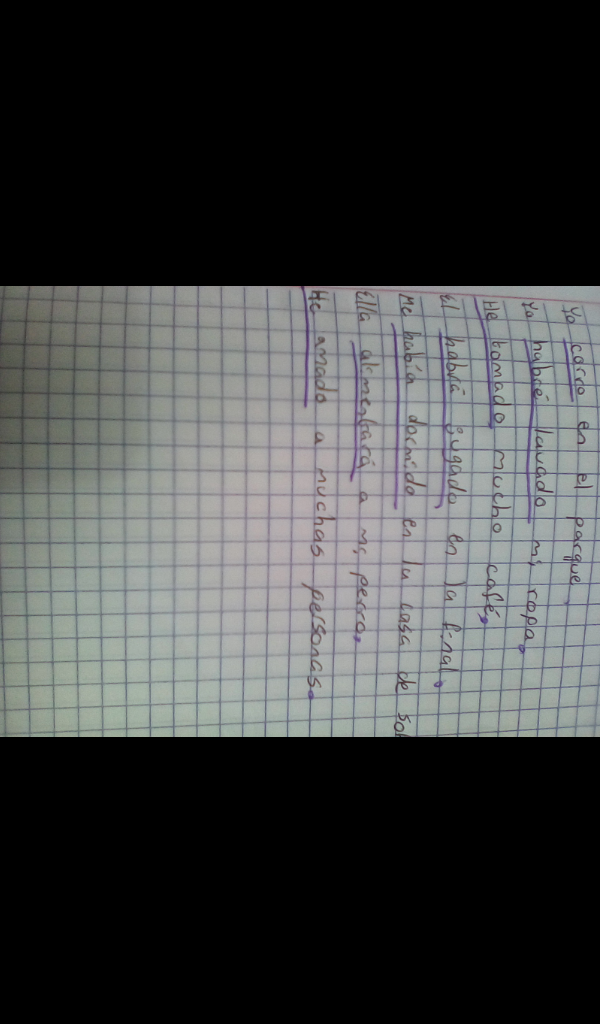 Yo corro en el parque.
Yo habré lavado mi ropa.
He tomado mucho café.
El habrá jugado en la final.
Me había dormido en la casa de
Ella alimentará a mi perro.
He amado a muchas personas.